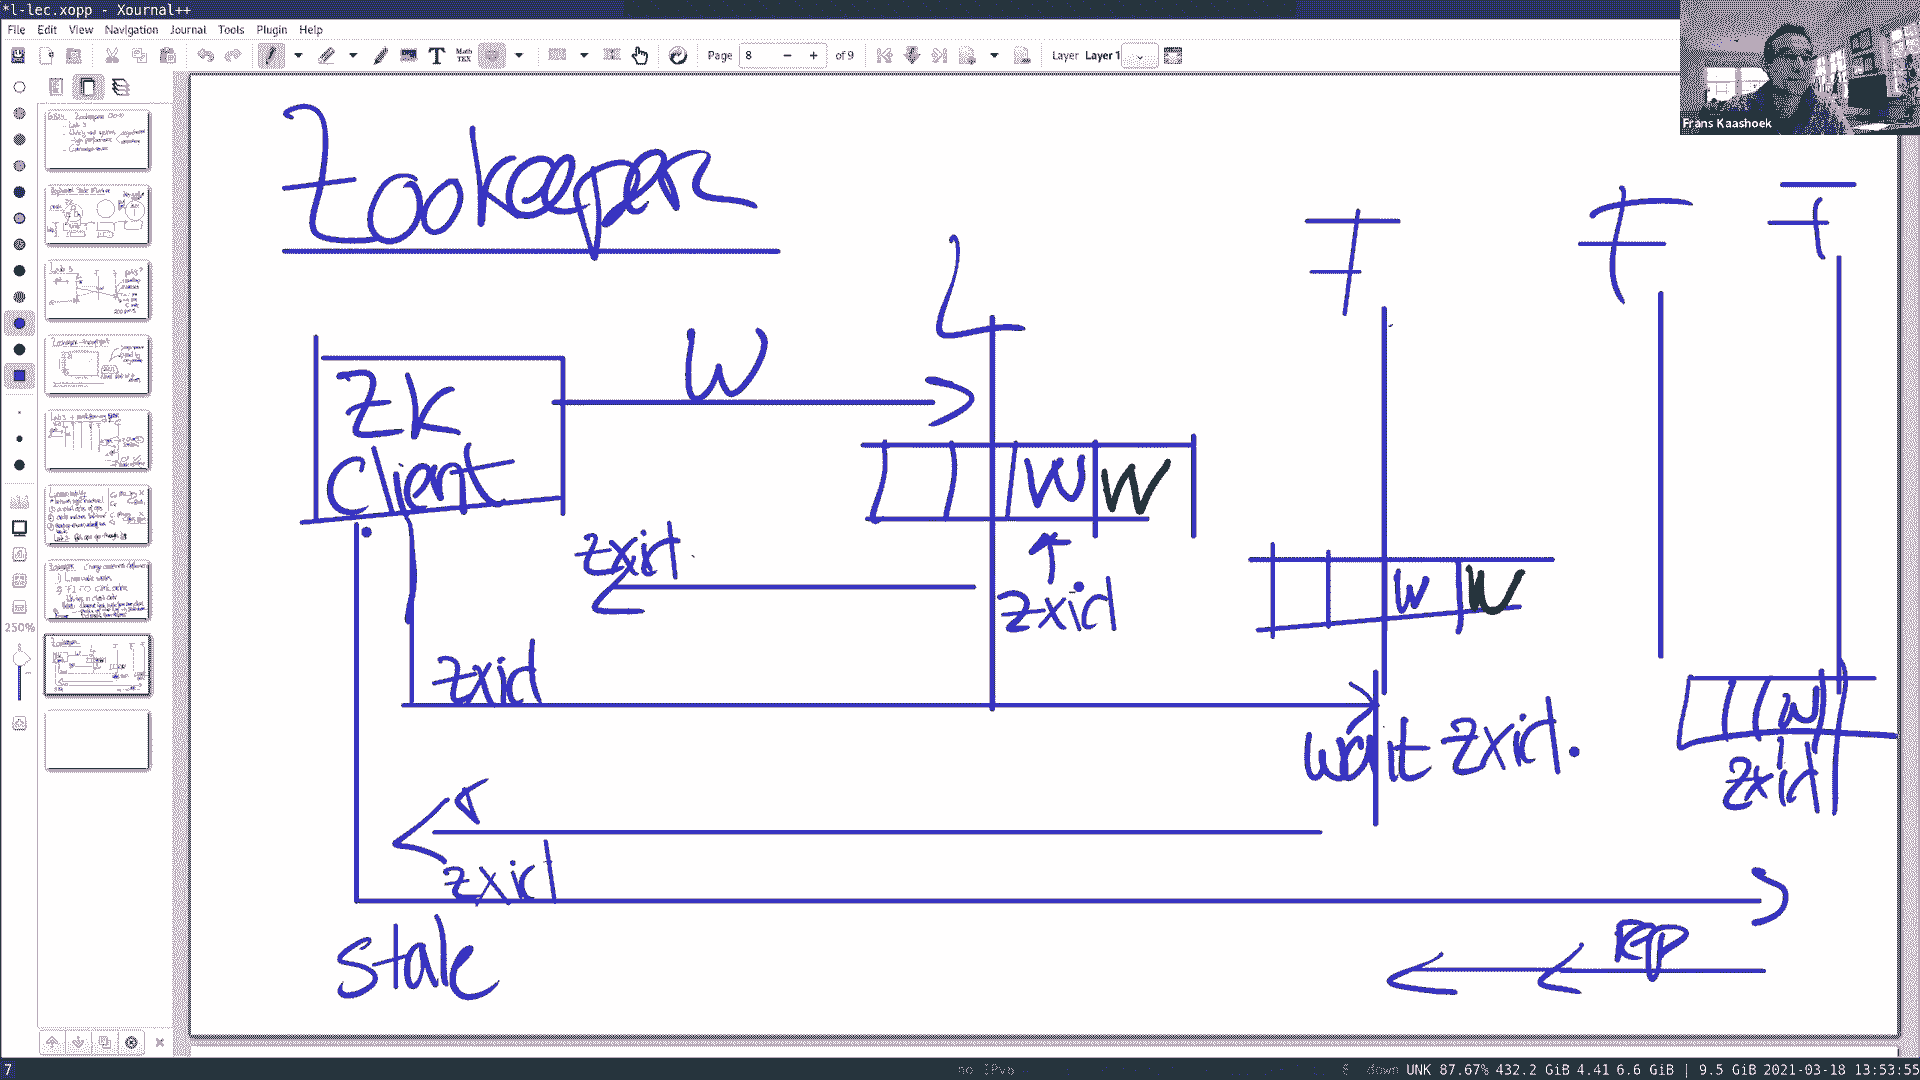 *l-lec.xopp - Xournal++
File Edit View Navigation Journal Tools Plugin Help
Page 8 of 9 Layer Layer 1
Frans Kaashoek
Zookeeper
L F F F
W
ZK
Client
W W
zxid
zxid
W W
zxid
wait zxid.
W
zxid
zxid
rep
stale
250%
7
no IPv6
down UNK 87.67% 432.2 GiB 4.41 6.6 GiB | 9.5 GiB 2021-03-18 13:53:55